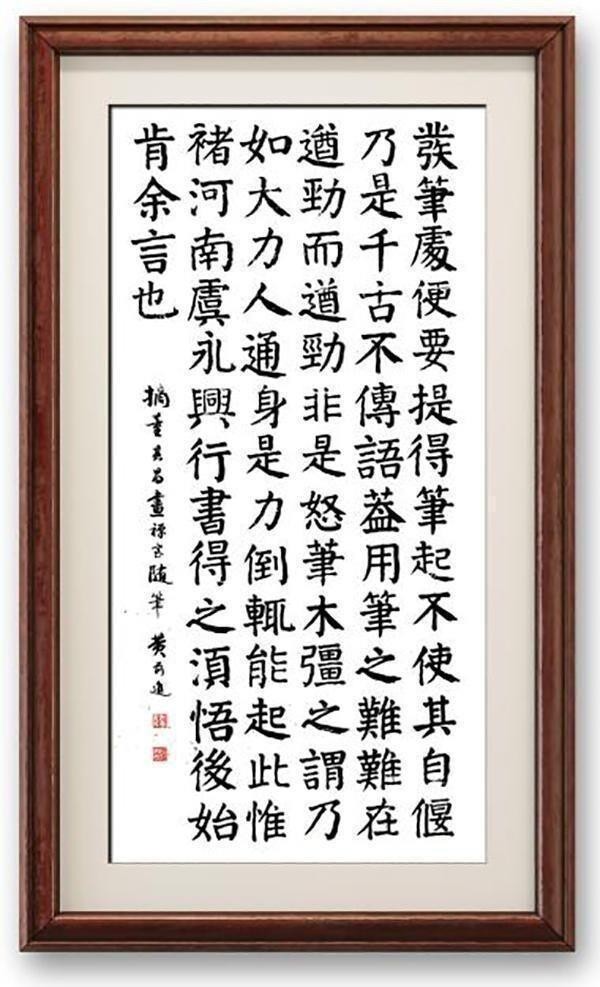 發筆處便要提得筆起不使其自偃
乃是千古不傳語葢用筆之難難在
遒勁而遒勁非是怒筆木彊之謂乃
如大力人通身是力倒輒能起此惟
褚河南虞永興行書得之湏悟後始
肯余言也
摘董其昌畫禪室隨筆 黄